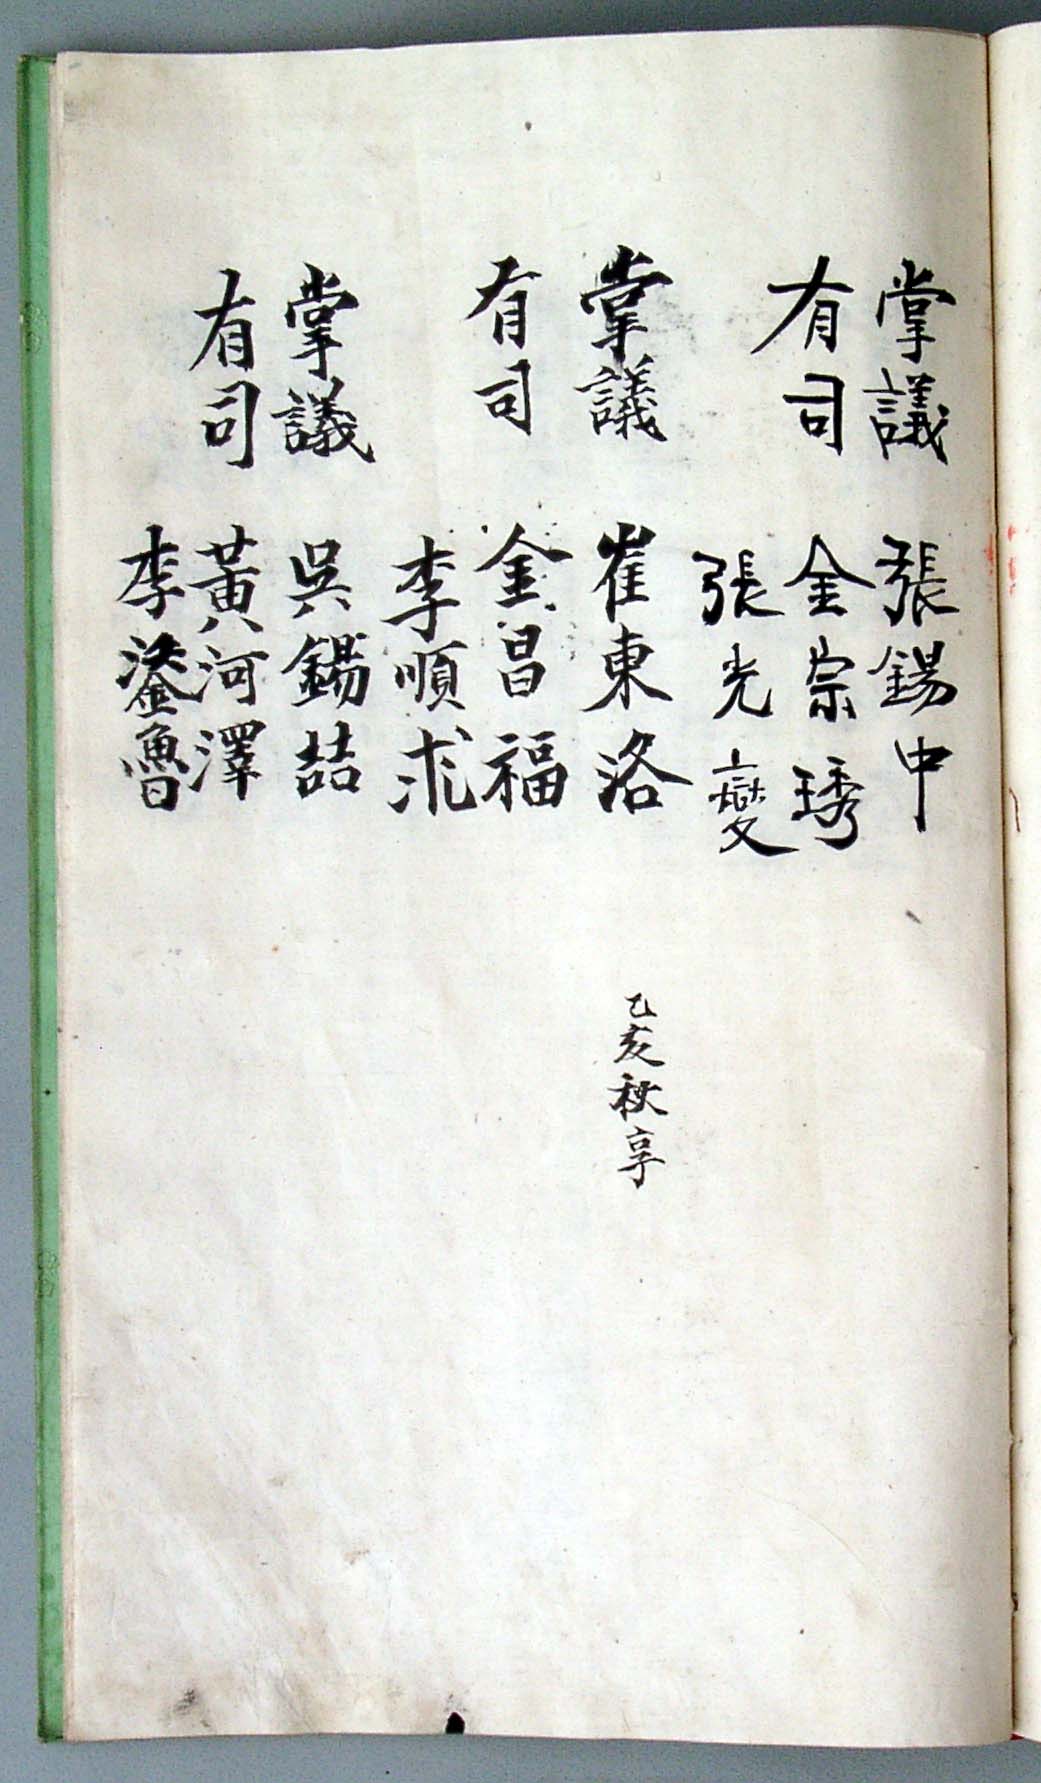 掌議 張錫中
有司 金宗琇
張光燮
掌議 崔東洛 乙亥秋享
有司 金昌福
李順求
掌議 吳錫喆
有司 黃河澤
李鍙魯